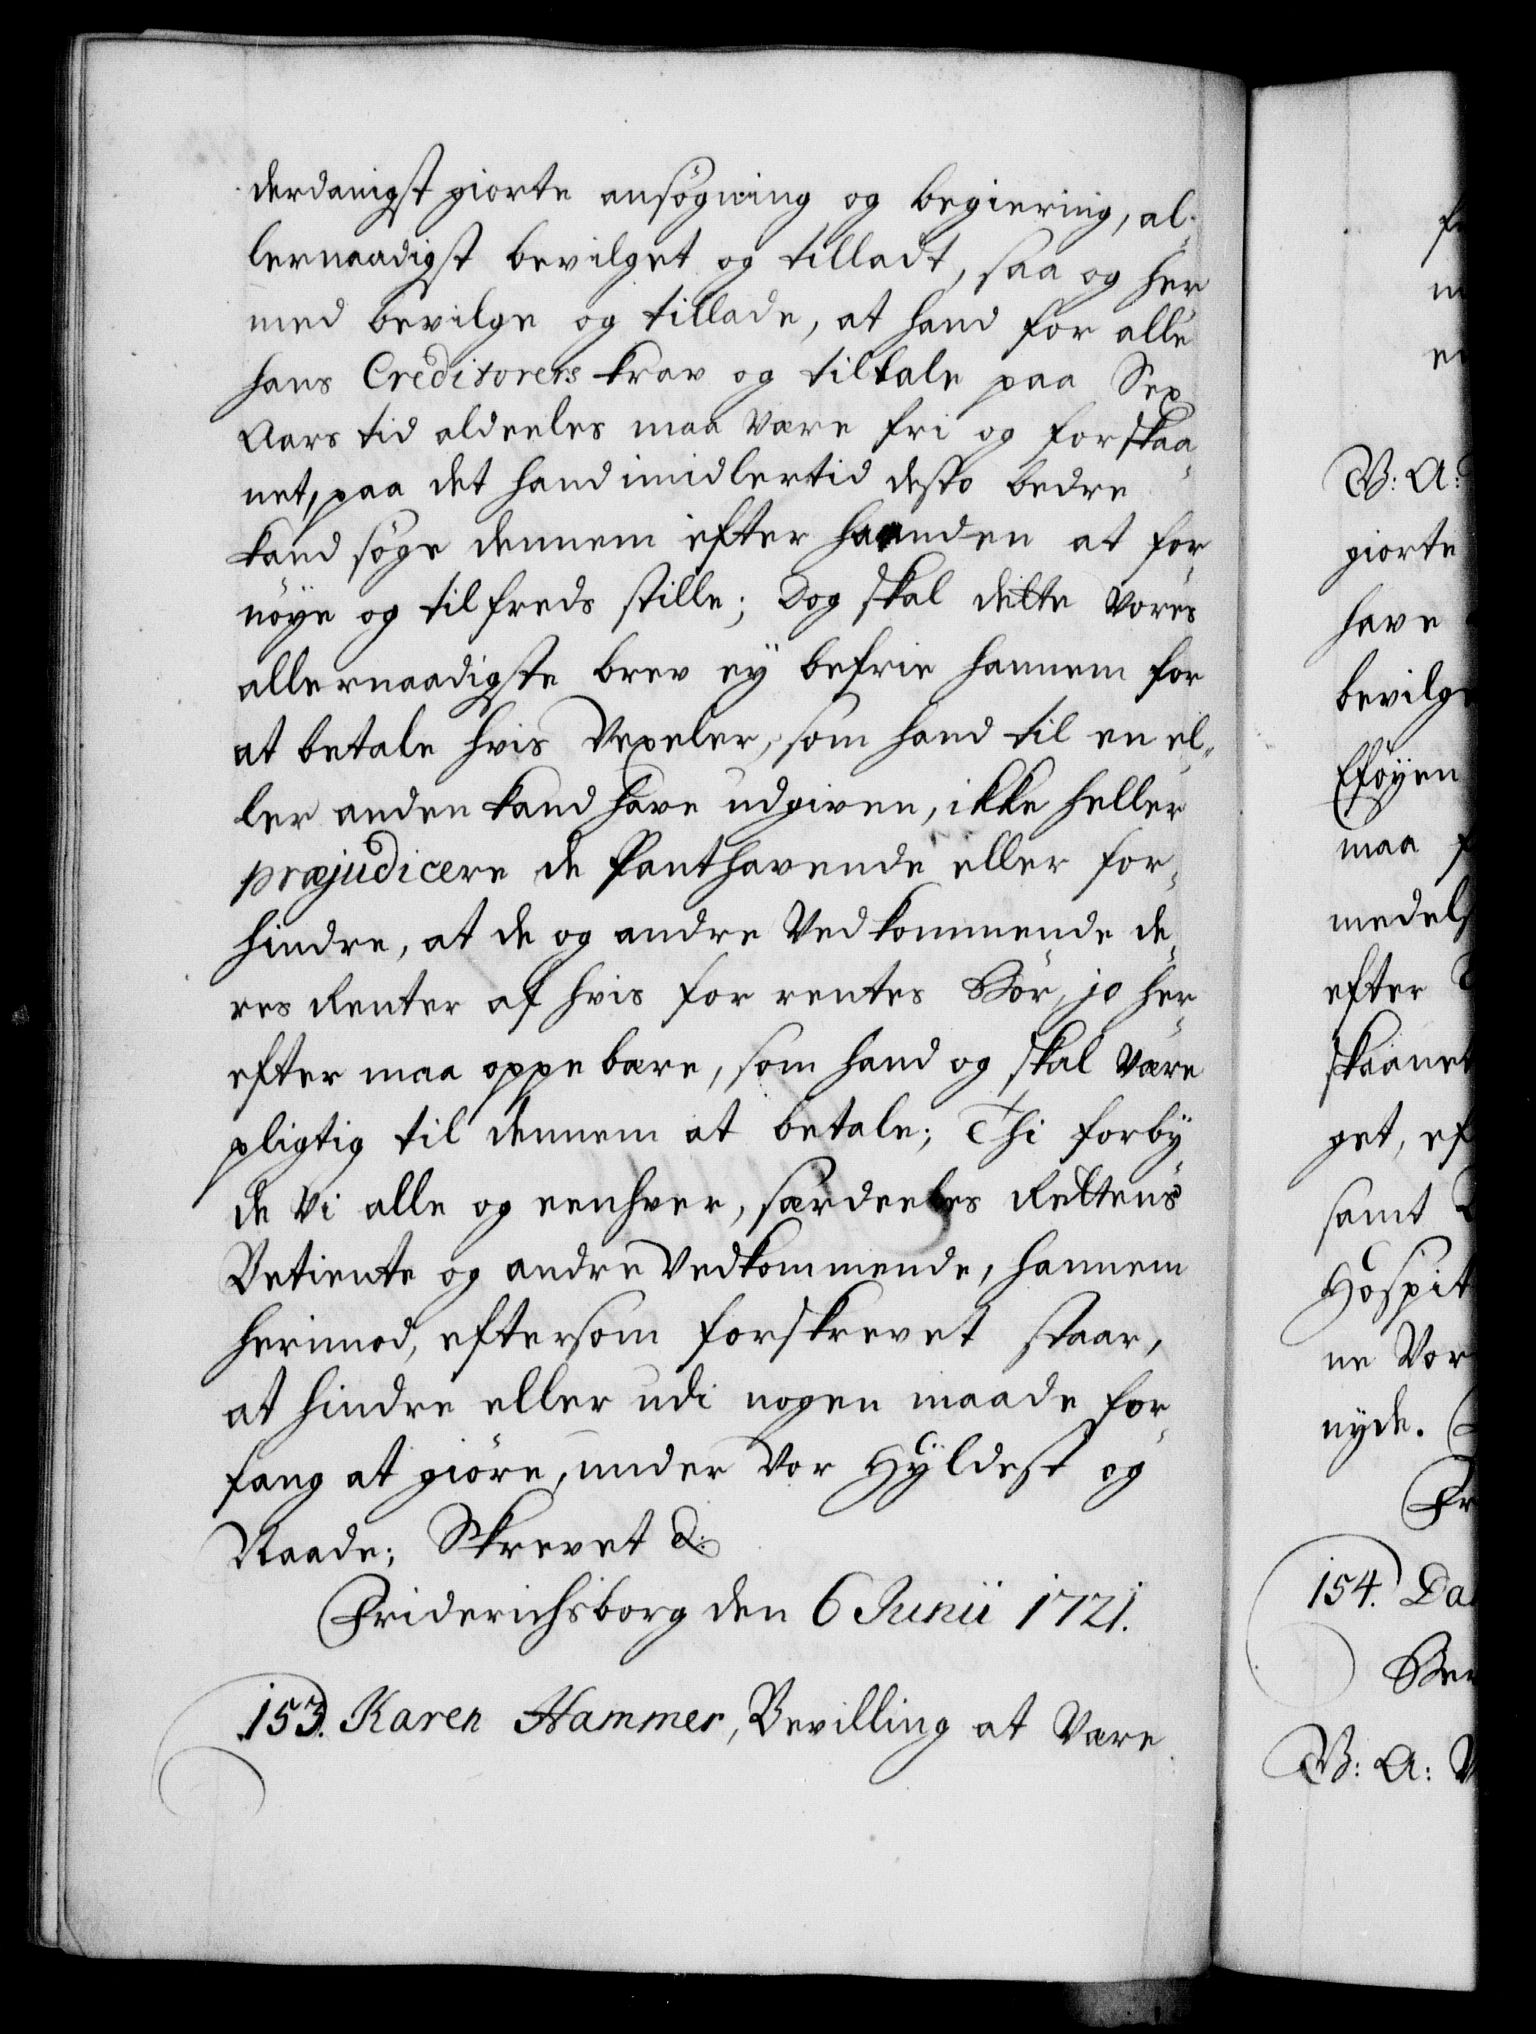 derdanigst giorte ansøgning og begiering, al-
lernaadigst bevilget og tilladt, saa og her
med bevilge og tillade, at hand for alle
hans Creditorers krav og tiltale paa Sex
Aars tid aldeeles maa være fri og forskaa-
net, paa det hand imidlertid desto bedre
kand søge dennem efter haanden at for-
nöye og tilfreds stille; Dog skal dette Vores
allernaadigste brev ey befrie hannem for
at betale hvis Vexeler, som hand til en el-
ler anden kand have udgiven, ikke heller
præjudicere de Panthavende eller for-
hindre, at de og andre Vedkommende de-
res Renter af hvis for rentes Bör, jo her-
efter maa oppebære, som hand og skal være
pligtig til dennem at betale; Thi forby-
de Vi alle og eenhver, særdeeles Rettens
Betiente og andre Vedkommende, hannem
herimod, eftersom forskrevet staar,
at hindre eller udi nogen maade for-
fang at giöre, under Vor Hyldest og
Naade; Skrevet &:
Friderichsborg den 6 Junii 1721.
153. Karen Hammer, Bevilling at Være
V: A:
giorte
have
bevilge
maa
efter
get, ef
samt
Hospit
ne Vor
nyde.
Fr
154. Da
V: A: